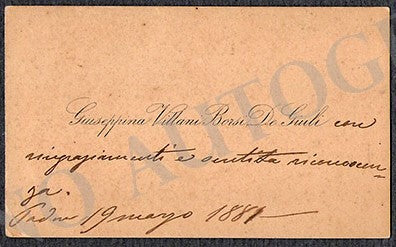 Giuseppina Villani Borsi De Giuli con
ringraziamenti e sentita riconoscen=
za.
19 marzo 1881